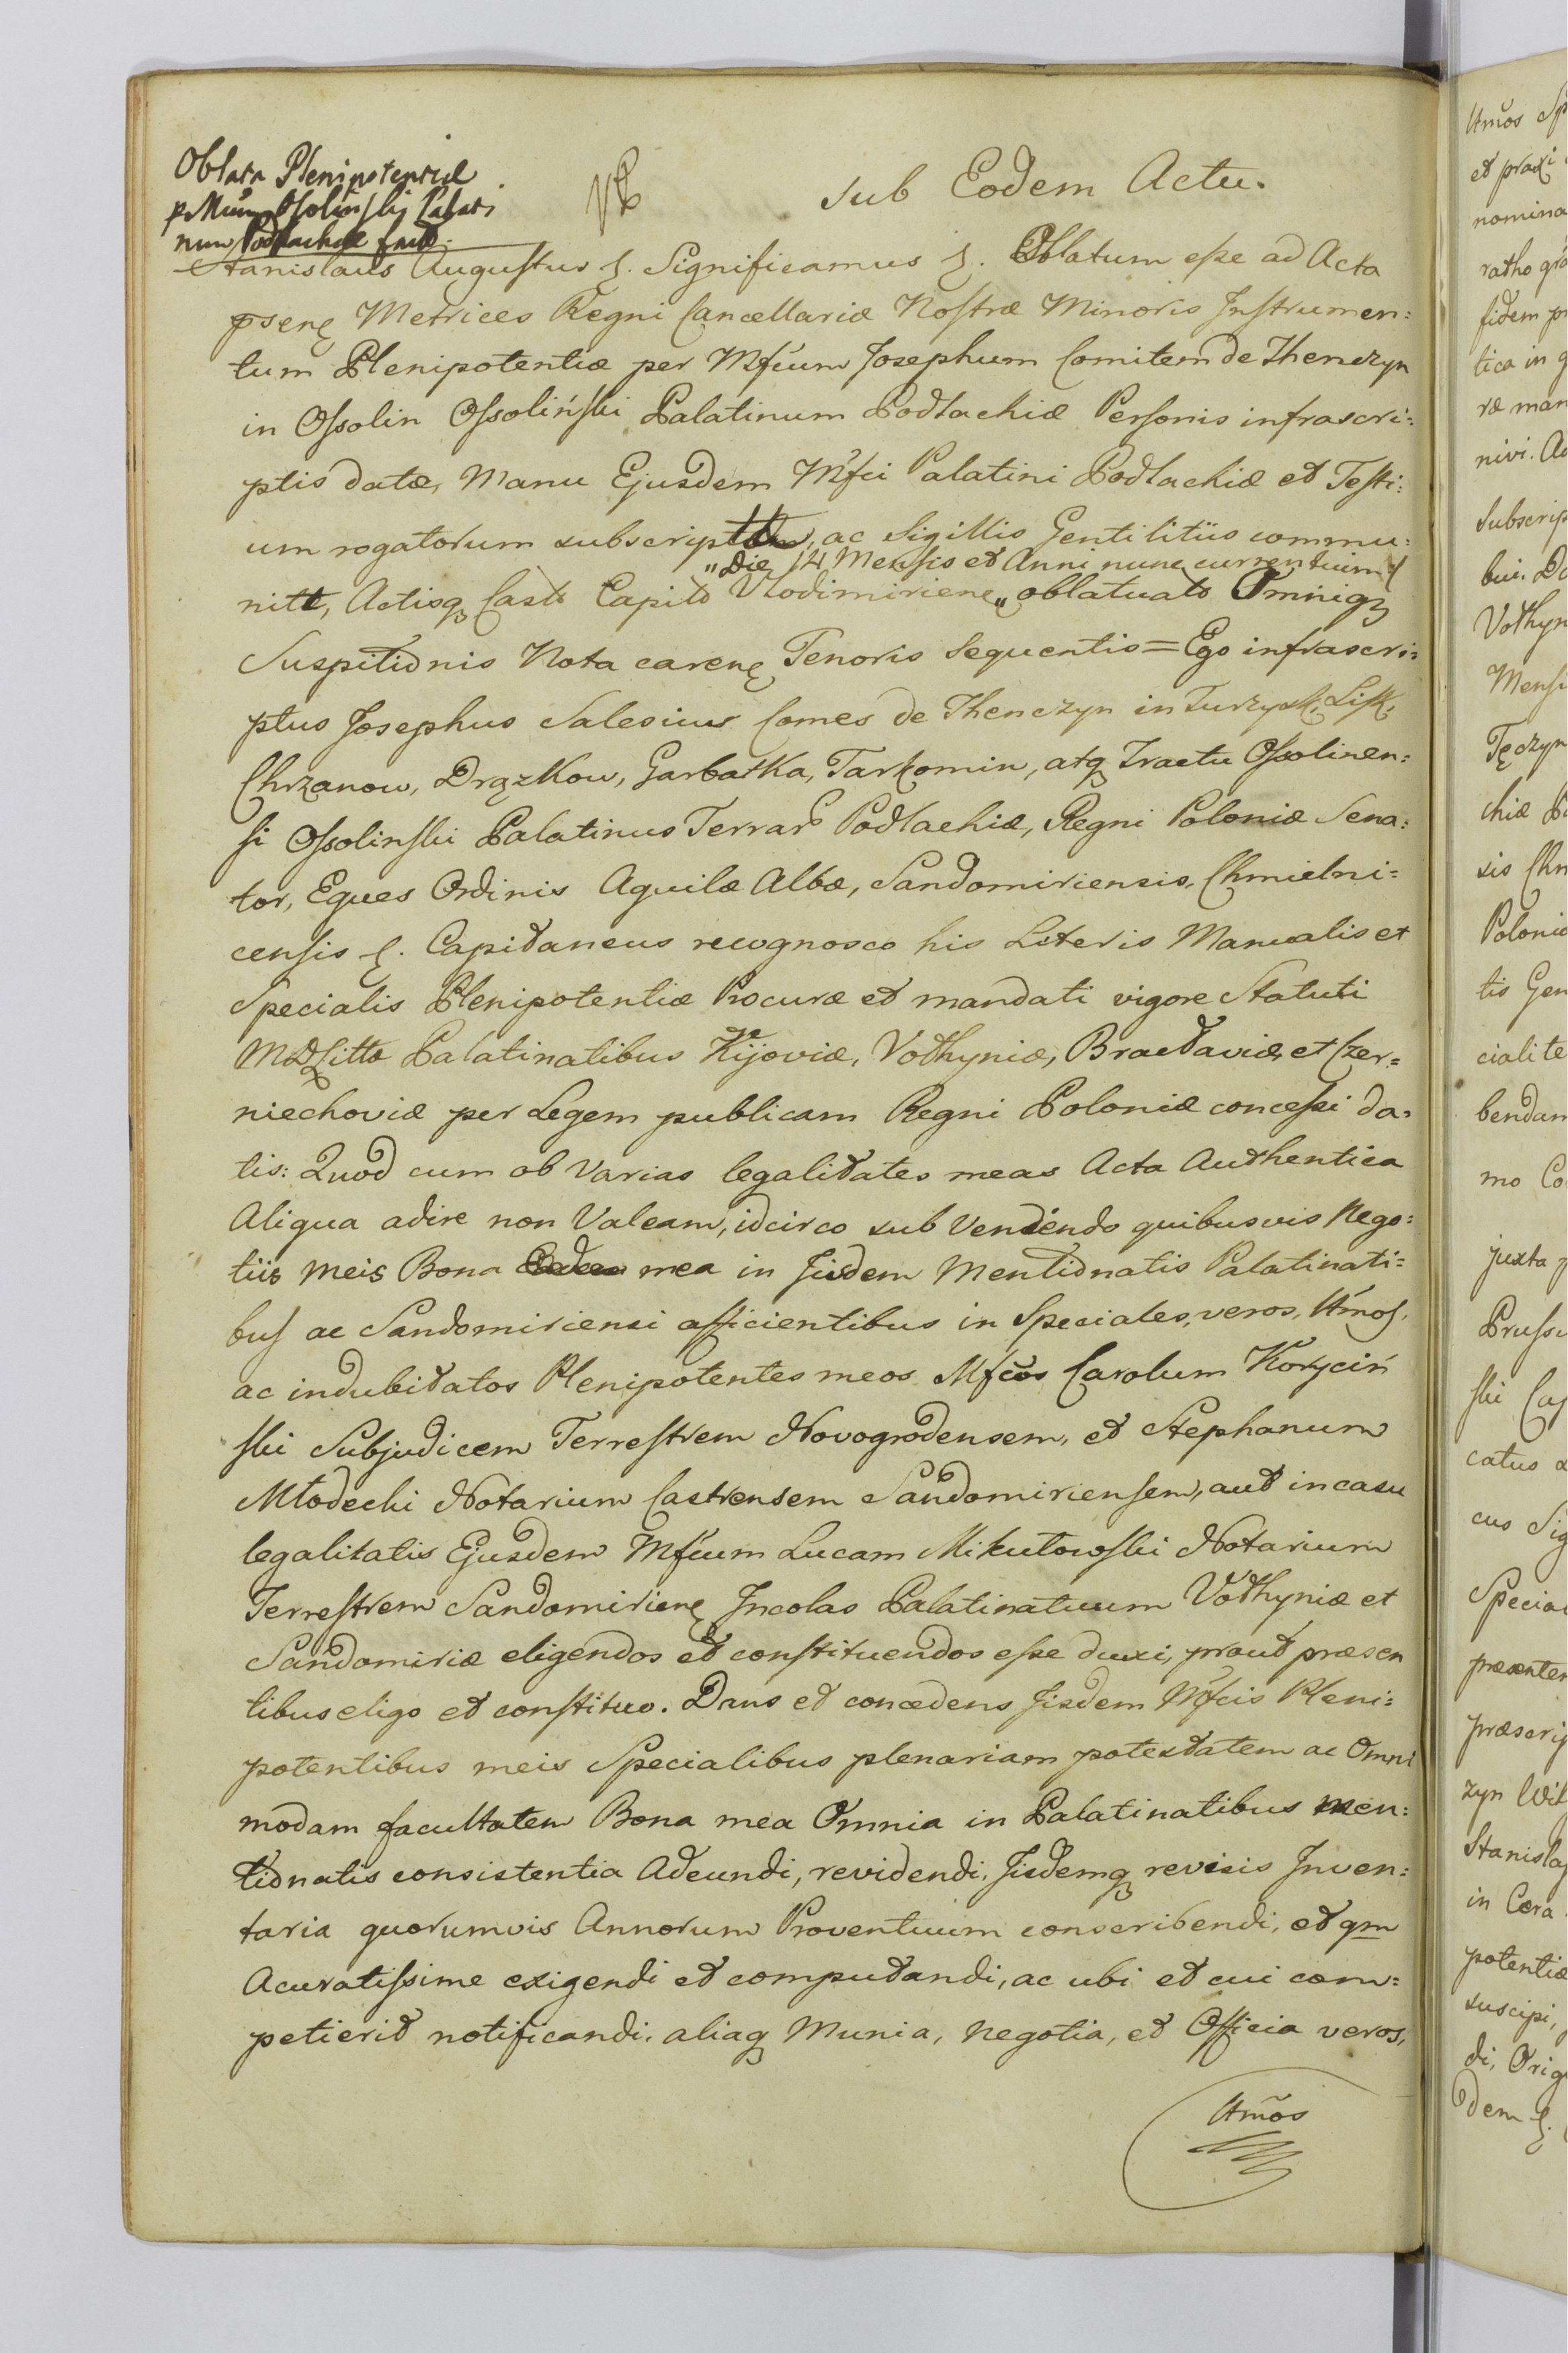 Oblata Plenipotentiæ
p. Mfcum Ossolinski Palati
num Podlachiæ factæ.
sub Eodem Actu.
Stanislaus Augustus &. Significamus &. Oblatum esse ad Acta
pseñ Metrices Regni Cancellariæ Nostræ Minoris Instrumen=
tum Plenipotentiæ per Mfcum Josephum Comitem de Thenczyn
in Ossolin Ossoliński Palatinum Podlachiæ Personis infrascri=
ptis datæ, Manu Ejusdem Mfci Palatini Podlachiæ et Testi=
um rogatorum subscriptum, ac Sigillis Gentilitiis commu=
„Die 14 Mensis et Anni nunc currentium
nitt, Actisq Castr Capitt Vlodimirienę „ oblatuatt Omniqz
Suspitionis Nota careñ Tenoris sequentis = Ego infrascri=
ptus Josephus Salesius Comes de Thenczyn in Turzysk, Lisk,
Chrzanow, Drązkow, Garbatka, Tarkomin, atq Tractu Ossolinen=
si Ossolinski Palatinus Terrar Podlachiæ, Regni Poloniæ Sena=
tor, Eques Ordinis Aquilæ Albæ, Sandomiriensis, Chmielni=
censis &. Capitaneus recognosco his Literis Manualis et
Specialis Plenipotentiæ Procuræ et mandati vigore Statuti
MDLitto Palatinatibus Kijoviæ, Volhyniæ, Braclaviæ, et Czer=
niechoviæ per Legem publicam Regni Poloniæ concessi da=
tis: Quod cum ob varias legalitates meas Acta Authentica
Aliqua adire non Valeam, idcirco sub vendendo quibusvis Nego=
tiis meis Bona mea in Jisdem Mentionatis Palatinati=
bus ac Sandomiriensi afficientibus in Speciales, veros, ltmos,
ac indubitatos Plenipotentes meos Mfcos Carolum Koryciń
ski Subjudicem Terrestrem Novogrodensem, et Stephanum
Młodecki Notarium Castrensem Sandomiriensem, aut in casu
legalitatis Ejusdem Mfcum Lucam Mikułowski Notarium
Terrestrem Sandomirienę Incolas Palatinatuum Volhyniæ et
Sandomiriæ eligendos et constituendos esse duxi, prout præsen
tibus eligo et constituo. Dans et concedens Jisdem Mfcis Pleni=
potentibus meis Specialibus plenariam potestatem ac Omni
modam facultatem Bona mea Omnia in Palatinatibus men=
tionatis consistentia Adeundi, revidendi, Jisdemq revisis Inven=
taria quorumvis Annorum Proventuum conscribendi, et qm
Acuratissime exigendi et computandi, ac ubi et cui com=
petierit notificandi, aliaq Munia, negotia, et Officia veros,
ltmos
ltmos
et praxi
nomina
ratho
fidem
tica in
ræ man
nivi. Ac
Subscrip
bui. Da
Volhyn
Mensi
Tęczyn
chiæ Pa
sis Chm
Poloniæ
tis Gen
cialite
bendam
mo Co
juxta
Prusse
ski Cap
catus
cus Sig
Special
præsenten
præscrip
zyn Wil
Stanislaj
in Cera
potentiæ
suscipi,
di, Orig
dem &.